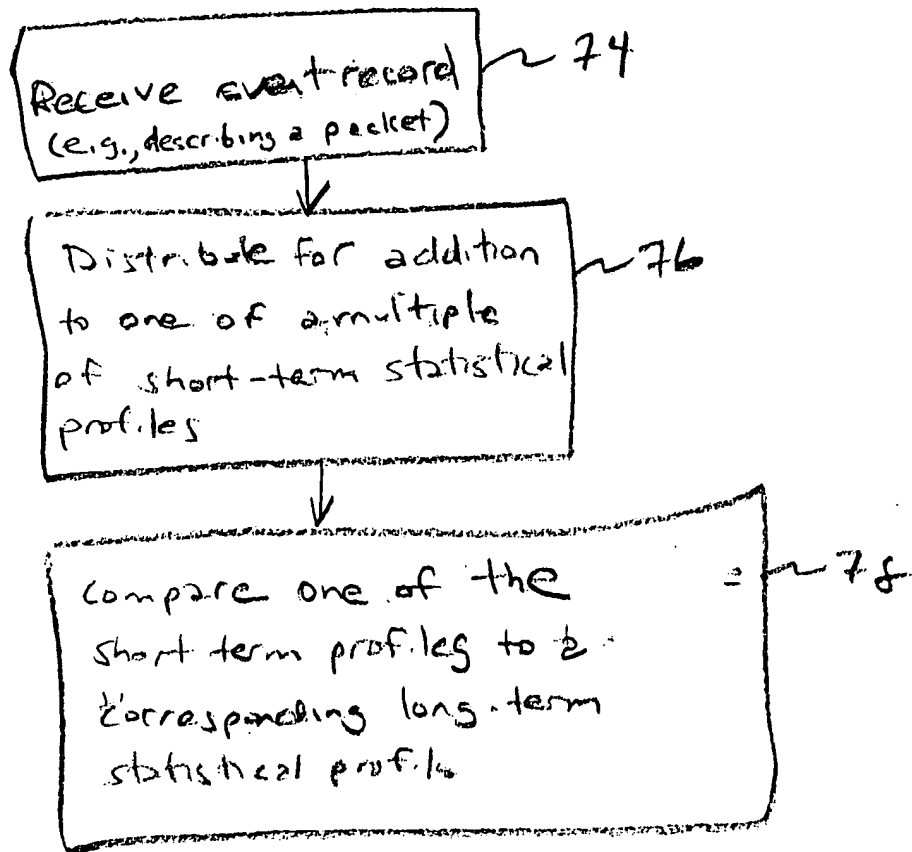 Receive event record
74
(e.g., describing a packet)
Distribute for addition
76
to one of a multiple
of short-term statistical
profiles
Compare one of the
78
short term profiles to a
corresponding long-term
statistical profile